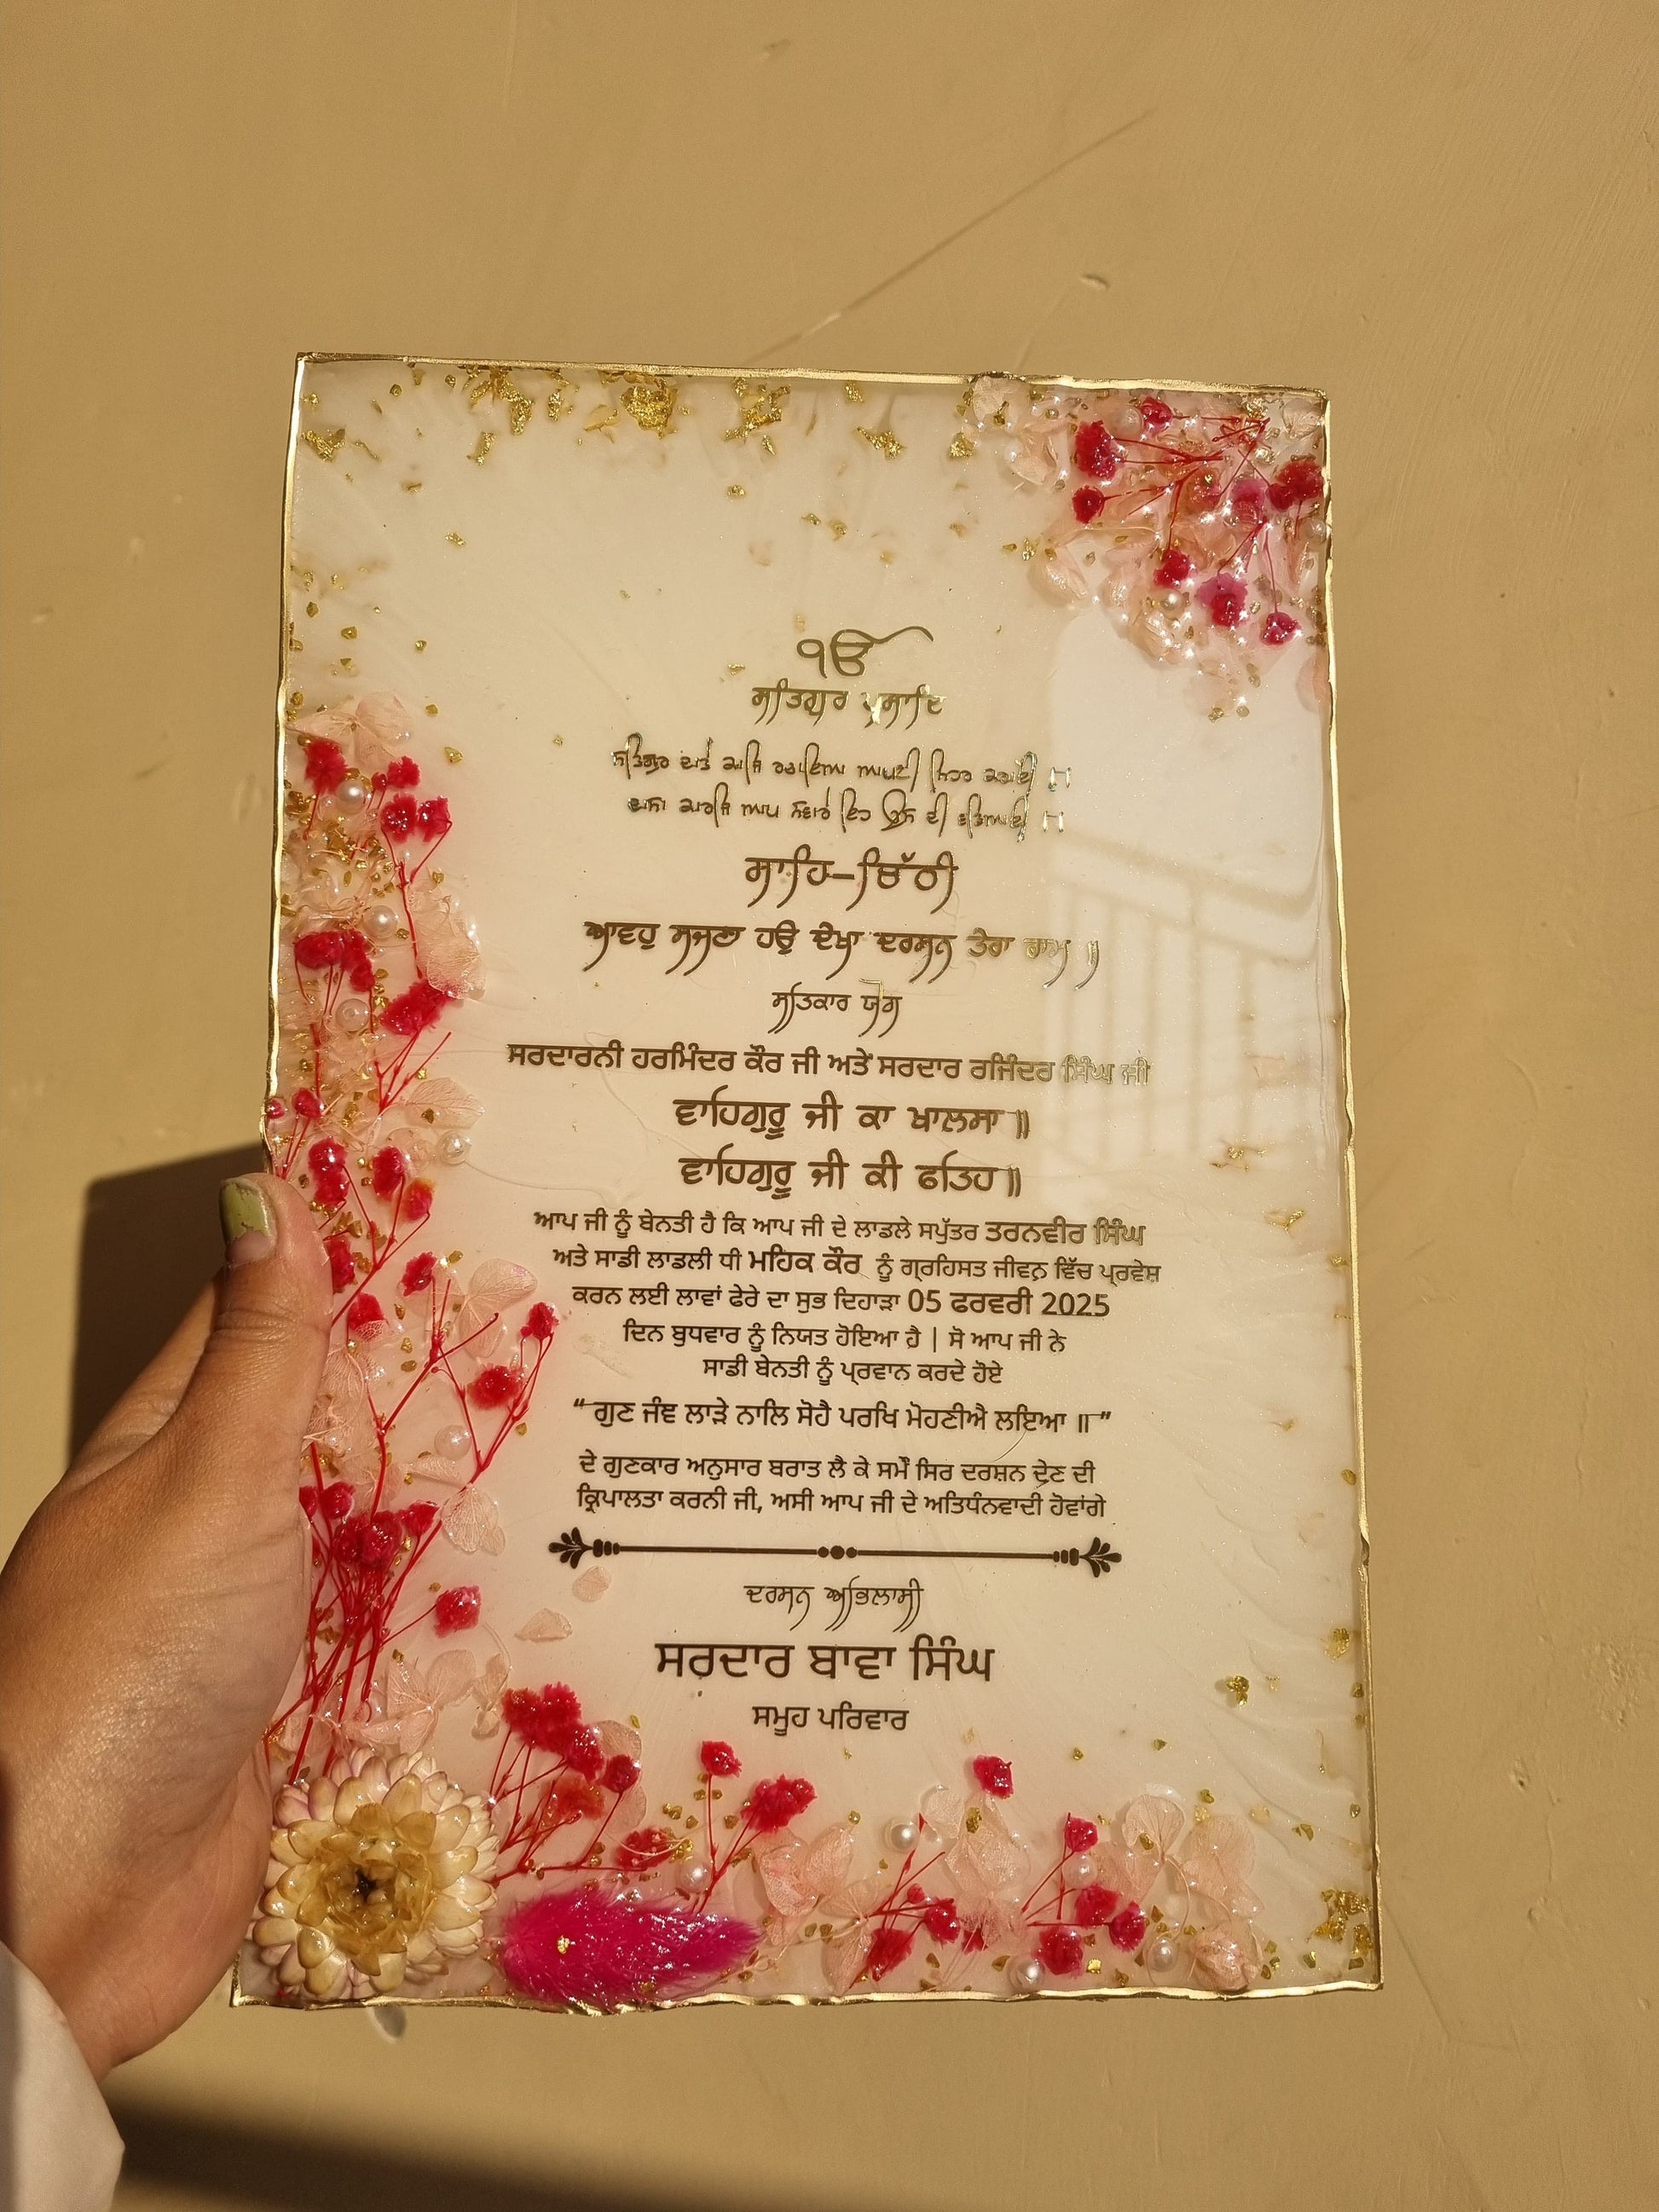 ੴ
ਸਤਿਗੁਰ ਪ੍ਰਸਾਦਿ
ਸਤਿਗੁਰ ਦਾਤੇ ਕਾਜ ਰਚਾਇਆ ਆਪਣੀ ਮਿਹਰ ਕਰਾਈ ॥
ਦਾਸਾ ਕਾਰਜ ਆਪ ਸਵਾਰੇ ਇਹ ਉਸ ਦੀ ਵਡਿਆਈ ॥
ਸਾਹਿ-ਚਿੱਠੀ
ਆਵਹੁ ਸਜਣਾ ਹਉ ਦੇਖਾ ਦਰਸਨ ਤੇਰਾ ਰਾਮ ॥
ਸਤਿਕਾਰ ਯੋਗ
ਸਰਦਾਰਨੀ ਹਰਮਿੰਦਰ ਕੌਰ ਜੀ ਅਤੇ ਸਰਦਾਰ ਰਜਿੰਦਰ ਸਿੰਘ ਜੀ
ਵਾਹਿਗੁਰੂ ਜੀ ਕਾ ਖਾਲਸਾ ॥
ਵਾਹਿਗੁਰੂ ਜੀ ਕੀ ਫਤਿਹ ॥
ਆਪ ਜੀ ਨੂੰ ਬੇਨਤੀ ਹੈ ਕਿ ਆਪ ਜੀ ਦੇ ਲਾਡਲੇ ਸਪੁੱਤਰ ਤਰਨਵੀਰ ਸਿੰਘ
ਅਤੇ ਸਾਡੀ ਲਾਡਲੀ ਧੀ ਮਹਿਕ ਕੌਰ ਨੂੰ ਗ੍ਰਹਿਸਤ ਜੀਵਨ ਵਿੱਚ ਪ੍ਰਵੇਸ਼
ਕਰਨ ਲਈ ਲਾਵਾਂ ਫੇਰੇ ਦਾ ਸੁਭ ਦਿਹਾੜਾ 05 ਫਰਵਰੀ 2025
ਦਿਨ ਬੁਧਵਾਰ ਨੂੰ ਨਿਯਤ ਹੋਇਆ ਹੈ | ਸੋ ਆਪ ਜੀ ਨੇ
ਸਾਡੀ ਬੇਨਤੀ ਨੂੰ ਪ੍ਰਵਾਨ ਕਰਦੇ ਹੋਏ
“ ਗੁਣ ਜੰਞ ਲਾੜੇ ਨਾਲਿ ਸੋਹੈ ਪਰਖਿ ਮੋਹਣੀਐ ਲਇਆ ॥ ”
ਦੇ ਗੁਣਕਾਰ ਅਨੁਸਾਰ ਬਰਾਤ ਲੈ ਕੇ ਸਮੇਂ ਸਿਰ ਦਰਸ਼ਨ ਦੇਣ ਦੀ
ਕ੍ਰਿਪਾਲਤਾ ਕਰਨੀ ਜੀ, ਅਸੀ ਆਪ ਜੀ ਦੇ ਅਤਿਧੰਨਵਾਦੀ ਹੋਵਾਂਗੇ
ਦਰਸ਼ਨ ਅਭਿਲਾਸੀ
ਸਰਦਾਰ ਬਾਵਾ ਸਿੰਘ
ਸਮੂਹ ਪਰਿਵਾਰ